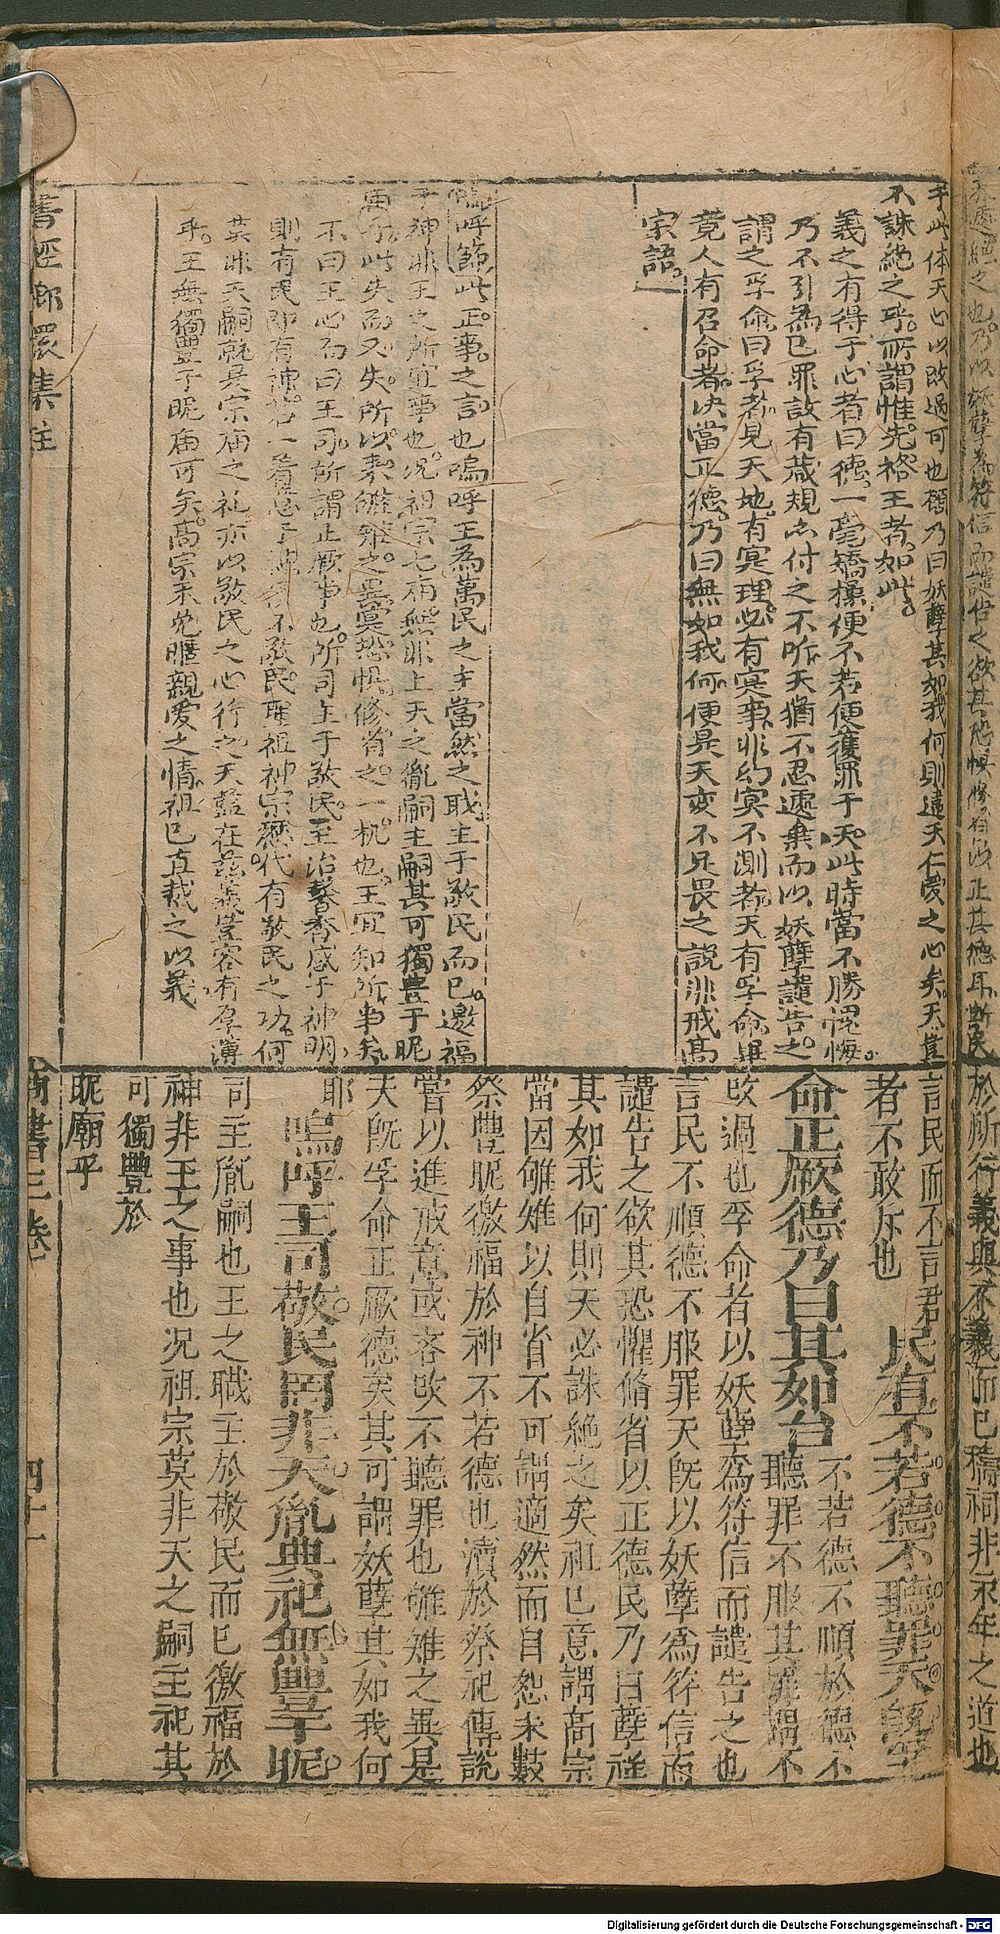 于此体天心以改過可也顧乃曰妖孽其如我何則違天仁愛之心矣天豈
不誅絶之乎所謂惟先格王者如此
義之有得于心者曰德一毫矯揉便不若便獲罪于天此時當不勝愧悔
乃不引為己罪設有箴規亦付之不听天猶不忍遽棄而以妖孽譴告之
謂之孚命曰孚者見天地有冥理必有冥事非幻冥不測者天有孚命畢
竟人有召命者决當正德乃曰無如我何便是天变不足畏之說非戒高
宗語
嗚呼節此正事之言也嗚呼王為萬民之主當然之職主于敬民而已邀福
于神非王之所宜事也况祖宗七庙無非上天之胤嗣主嗣其可獨豊于昵
不曰王心而曰王司所謂正厥事也所司主于敬民至治馨香感于神明
則有民即有神若一着意于神不敬民祖神宗歷代有敬民之功何
莫非天嗣就是宗庙之礼亦以敬民之心行之天監在茲義豈容有厚薄
乎王無獨豊于昵庙可矣高宗未免暱親愛之情祖己直裁之以義
書經瑯環集註
言民而不言君
者不敢斥也 民有不若德不聽罪天既孚
命正厥德乃曰其如台 不若德不順於德不
聽罪不服其罪謂不
改過也孚命者以妖孽為符信而譴告之也
言民不順德不服罪天既以妖孽為符信而
譴告之欲其恐懼脩省以正德民乃曰孽祥
其如我何則天必誅絶之矣祖己意謂高宗
當因雊雉以自省不可謂適然而自恕夫數
祭豐昵徼福於神不若德也瀆於祭祀傳說
嘗以進戒意或吝改不聽罪也雊雉之異是
天既孚命正厥德矣其可謂妖孽其如我何
耶
嗚呼王司敬民罔非天胤典祀無豐于昵
司主胤嗣也王之職主於敬民而已徼福於
神非王之事也况祖宗莫非天之嗣主祀其
可獨豐於
昵廟乎
尚書三卷
四十一
Digitalisierung gefördert durch die Deutsche Forschungsgemeinschaft - DFG